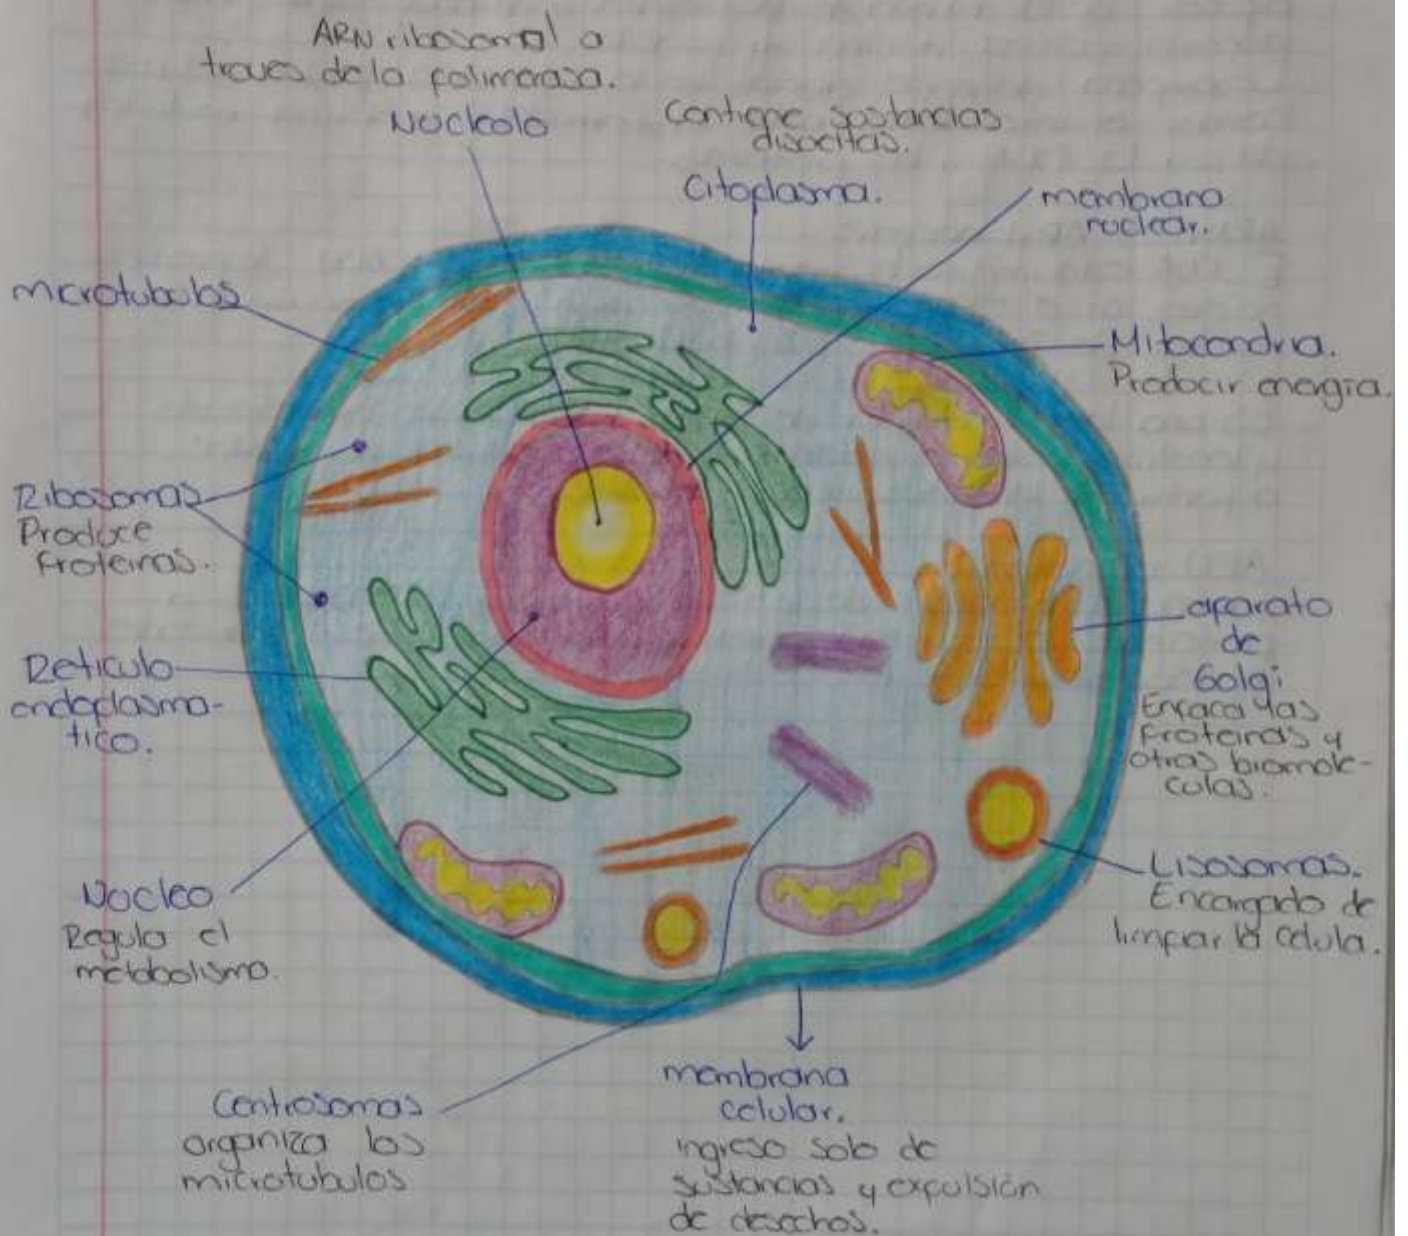 ARN ribosomal a
traves de la polimerasa.
Nucleolo
Contiene sustancias
disueltas.
Citoplasma.
membrana
nuclear.
microtubulos
Mitocondria.
Producir energia.
Ribosomas
Produce
Proteinas.
aparato
de
Golgi
Enfaca las
Proteinas y
otras biomole-
culas.
Reticulo
endoplasma-
tico.
Lisosomas.
Encargado de
limpiar la celula.
Nucleo
Regula el
metabolismo.
Centrosomas
organiza los
microtubulos
membrana
celular.
ingreso solo de
sustancias y expulsión
de desechos.